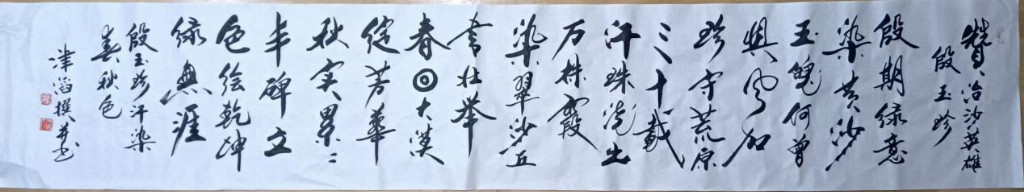 赞治沙英雄
殷玉珍
殷期绿意
染黄沙
玉魄何曾
风加
珍守荒原
三十载
汗珠浇出
万株霞
染翠沙丘
书壮举
春回大漠
绽芳华
秋实累累
丰碑立
色绘乾坤
绿無涯
殷玉珍汗染
春秋色
津滔撰并书